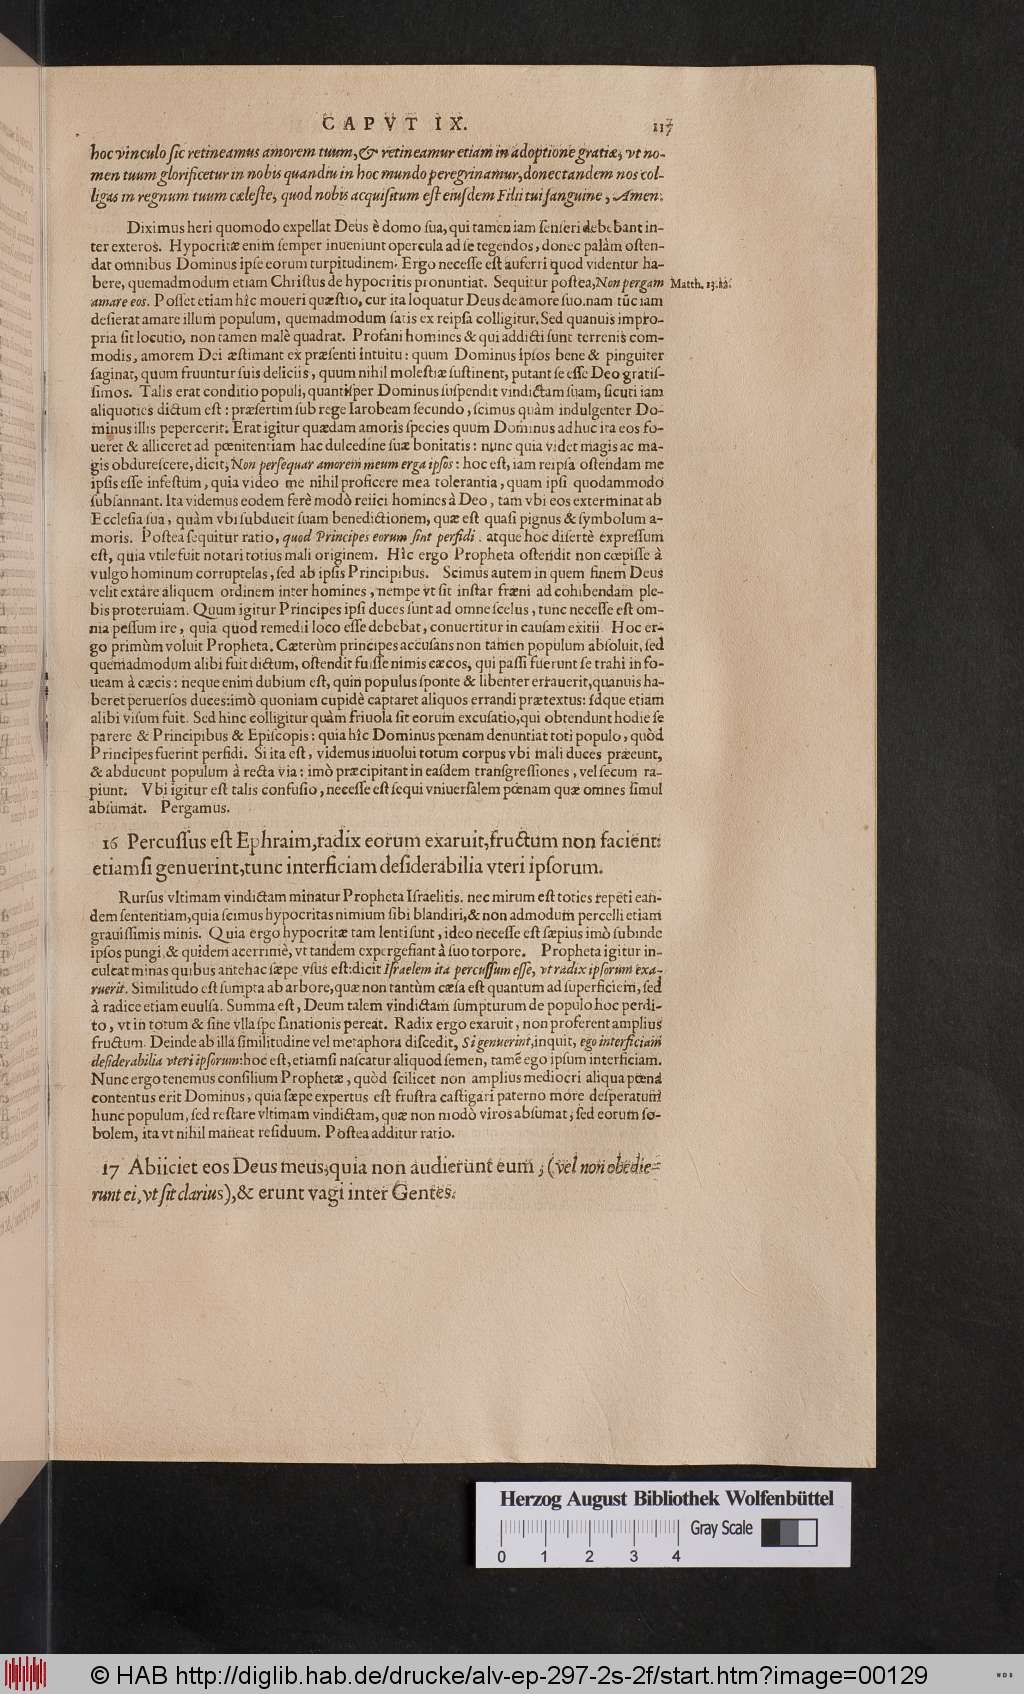 CAPVT IX. 117
hoc vinculo ſic retineamus amorem tuum, & retineamur etiam in adoptione gratiæ, vt no-
men tuum glorificetur in nobis quandiu in hoc mundo peregrinamur, donec tandem nos col-
ligas in regnum tuum cæleſte, quod nobis acquiſitum eſt eiuſdem Filii tui ſanguine, Amen.
Diximus heri quomodo expellat Deus è domo ſua, qui tamen iam ſenſeri debebant in-
ter exteros. Hypocritæ enim ſemper inueniunt opercula ad ſe tegendos, donec palàm oſten-
dat omnibus Dominus ipſe eorum turpitudinem. Ergo neceſſe eſt auferri quod videntur ha-
bere, quemadmodum etiam Chriſtus de hypocritis pronuntiat. Sequitur poſtea, Non pergam
Matth. 13.12.
amare eos. Poſſet etiam hîc moueri quæſtio, cur ita loquatur Deus de amore ſuo. nam tũc iam
deſierat amare illum populum, quemadmodum ſatis ex reipſa colligitur. Sed quanuis impro-
pria ſit locutio, non tamen malè quadrat. Profani homines & qui addicti ſunt terrenis com-
modis, amorem Dei æſtimant ex præſenti intuitu: quum Dominus ipſos bene & pinguiter
ſaginat, quum fruuntur ſuis deliciis, quum nihil moleſtiæ ſuſtinent, putant ſe eſſe Deo gratiſ-
ſimos. Talis erat conditio populi, quantiſper Dominus ſuſpendit vindictam ſuam, ſicuti iam
aliquoties dictum eſt: præſertim ſub rege Iarobeam ſecundo, ſcimus quàm indulgenter Do-
minus illis pepercerit. Erat igitur quædam amoris ſpecies quum Dominus adhuc ita eos fo-
ueret & alliceret ad pœnitentiam hac dulcedine ſuæ bonitatis: nunc quia videt magis ac ma-
gis obdureſcere, dicit, Non perſequar amorem meum erga ipſos: hoc eſt, iam reipſa oſtendam me
ipſis eſſe infeſtum, quia video me nihil proficere mea tolerantia, quam ipſi quodammodo
ſubſannant. Ita videmus eodem ferè modò reiici homines à Deo, tam vbi eos exterminat ab
Eccleſia ſua, quàm vbi ſubducit ſuam benedictionem, quæ eſt quaſi pignus & ſymbolum a-
moris. Poſtea ſequitur ratio, quod Principes eorum ſint perfidi. atque hoc diſertè expreſſum
eſt, quia vtile fuit notari totius mali originem. Hîc ergo Propheta oſtendit non cœpiſſe à
vulgo hominum corruptelas, ſed ab ipſis Principibus. Scimus autem in quem finem Deus
velit extare aliquem ordinem inter homines, nempe vt ſit inſtar fræni ad cohibendam ple-
bis proteruiam. Quum igitur Principes ipſi duces ſunt ad omne ſcelus, tunc neceſſe eſt om-
nia peſſum ire, quia quod remedii loco eſſe debebat, conuertitur in cauſam exitii. Hoc er-
go primùm voluit Propheta. Cæterùm principes accuſans non tamen populum abſoluit, ſed
quemadmodum alibi fuit dictum, oſtendit fuiſſe nimis cæcos, qui paſſi fuerunt ſe trahi in fo-
ueam à cæcis: neque enim dubium eſt, quin populus ſponte & libenter errauerit, quanuis ha-
beret peruerſos duces: imò quoniam cupidè captaret aliquos errandi prætextus: idque etiam
alibi viſum fuit. Sed hinc colligitur quàm friuola ſit eorum excuſatio, qui obtendunt hodie ſe
parere & Principibus & Epiſcopis: quia hîc Dominus pœnam denuntiat toti populo, quòd
Principes fuerint perfidi. Si ita eſt, videmus inuolui totum corpus vbi mali duces præeunt,
& abducunt populum à recta via: imò præcipitant in eaſdem tranſgreſſiones, vel ſecum ra-
piunt. Vbi igitur eſt talis confuſio, neceſſe eſt ſequi vniuerſalem pœnam quæ omnes ſimul
abſumat. Pergamus.
16 Percuſſus eſt Ephraim, radix eorum exaruit, fructum non facient:
etiamſi genuerint, tunc interficiam deſiderabilia vteri ipſorum.
Rurſus vltimam vindictam minatur Propheta Iſraelitis. nec mirum eſt toties repeti ean-
dem ſententiam, quia ſcimus hypocritas nimium ſibi blandiri, & non admodum percelli etiam
grauiſſimis minis. Quia ergo hypocritæ tam lenti ſunt, ideo neceſſe eſt ſæpius imò ſubinde
ipſos pungi & quidem acerrimè, vt tandem expergefiant à ſuo torpore. Propheta igitur in-
culcat minas quibus antehac ſæpe vſus eſt: dicit Iſraelem ita percuſſum eſſe, vt radix ipſorum exa-
ruerit. Similitudo eſt ſumpta ab arbore, quæ non tantùm cæſa eſt quantum ad ſuperficiem, ſed
à radice etiam euulſa. Summa eſt, Deum talem vindictam ſumpturum de populo hoc perdi-
to, vt in totum & ſine vlla ſpe ſanationis pereat. Radix ergo exaruit, non proferent amplius
fructum. Deinde ab illa ſimilitudine vel metaphora diſcedit, Si genuerint, inquit, ego interficiam
deſiderabilia vteri ipſorum: hoc eſt, etiamſi naſcatur aliquod ſemen, tamẽ ego ipſum interficiam.
Nunc ergo tenemus conſilium Prophetæ, quòd ſcilicet non amplius mediocri aliqua pœna
contentus erit Dominus, quia ſæpe expertus eſt fruſtra caſtigari paterno more deſperatum
hunc populum, ſed reſtare vltimam vindictam, quæ non modò viros abſumat, ſed eorum ſo-
bolem, ita vt nihil maneat reſiduum. Poſtea additur ratio.
17 Abiiciet eos Deus meus, quia non audierunt eum; (vel non obedie-
runt ei, vt ſit clarius), & erunt vagi inter Gentes.
Herzog August Bibliothek Wolfenbüttel
Gray Scale
0 1 2 3 4
© HAB http://diglib.hab.de/drucke/alv-ep-297-2s-2f/start.htm?image=00129